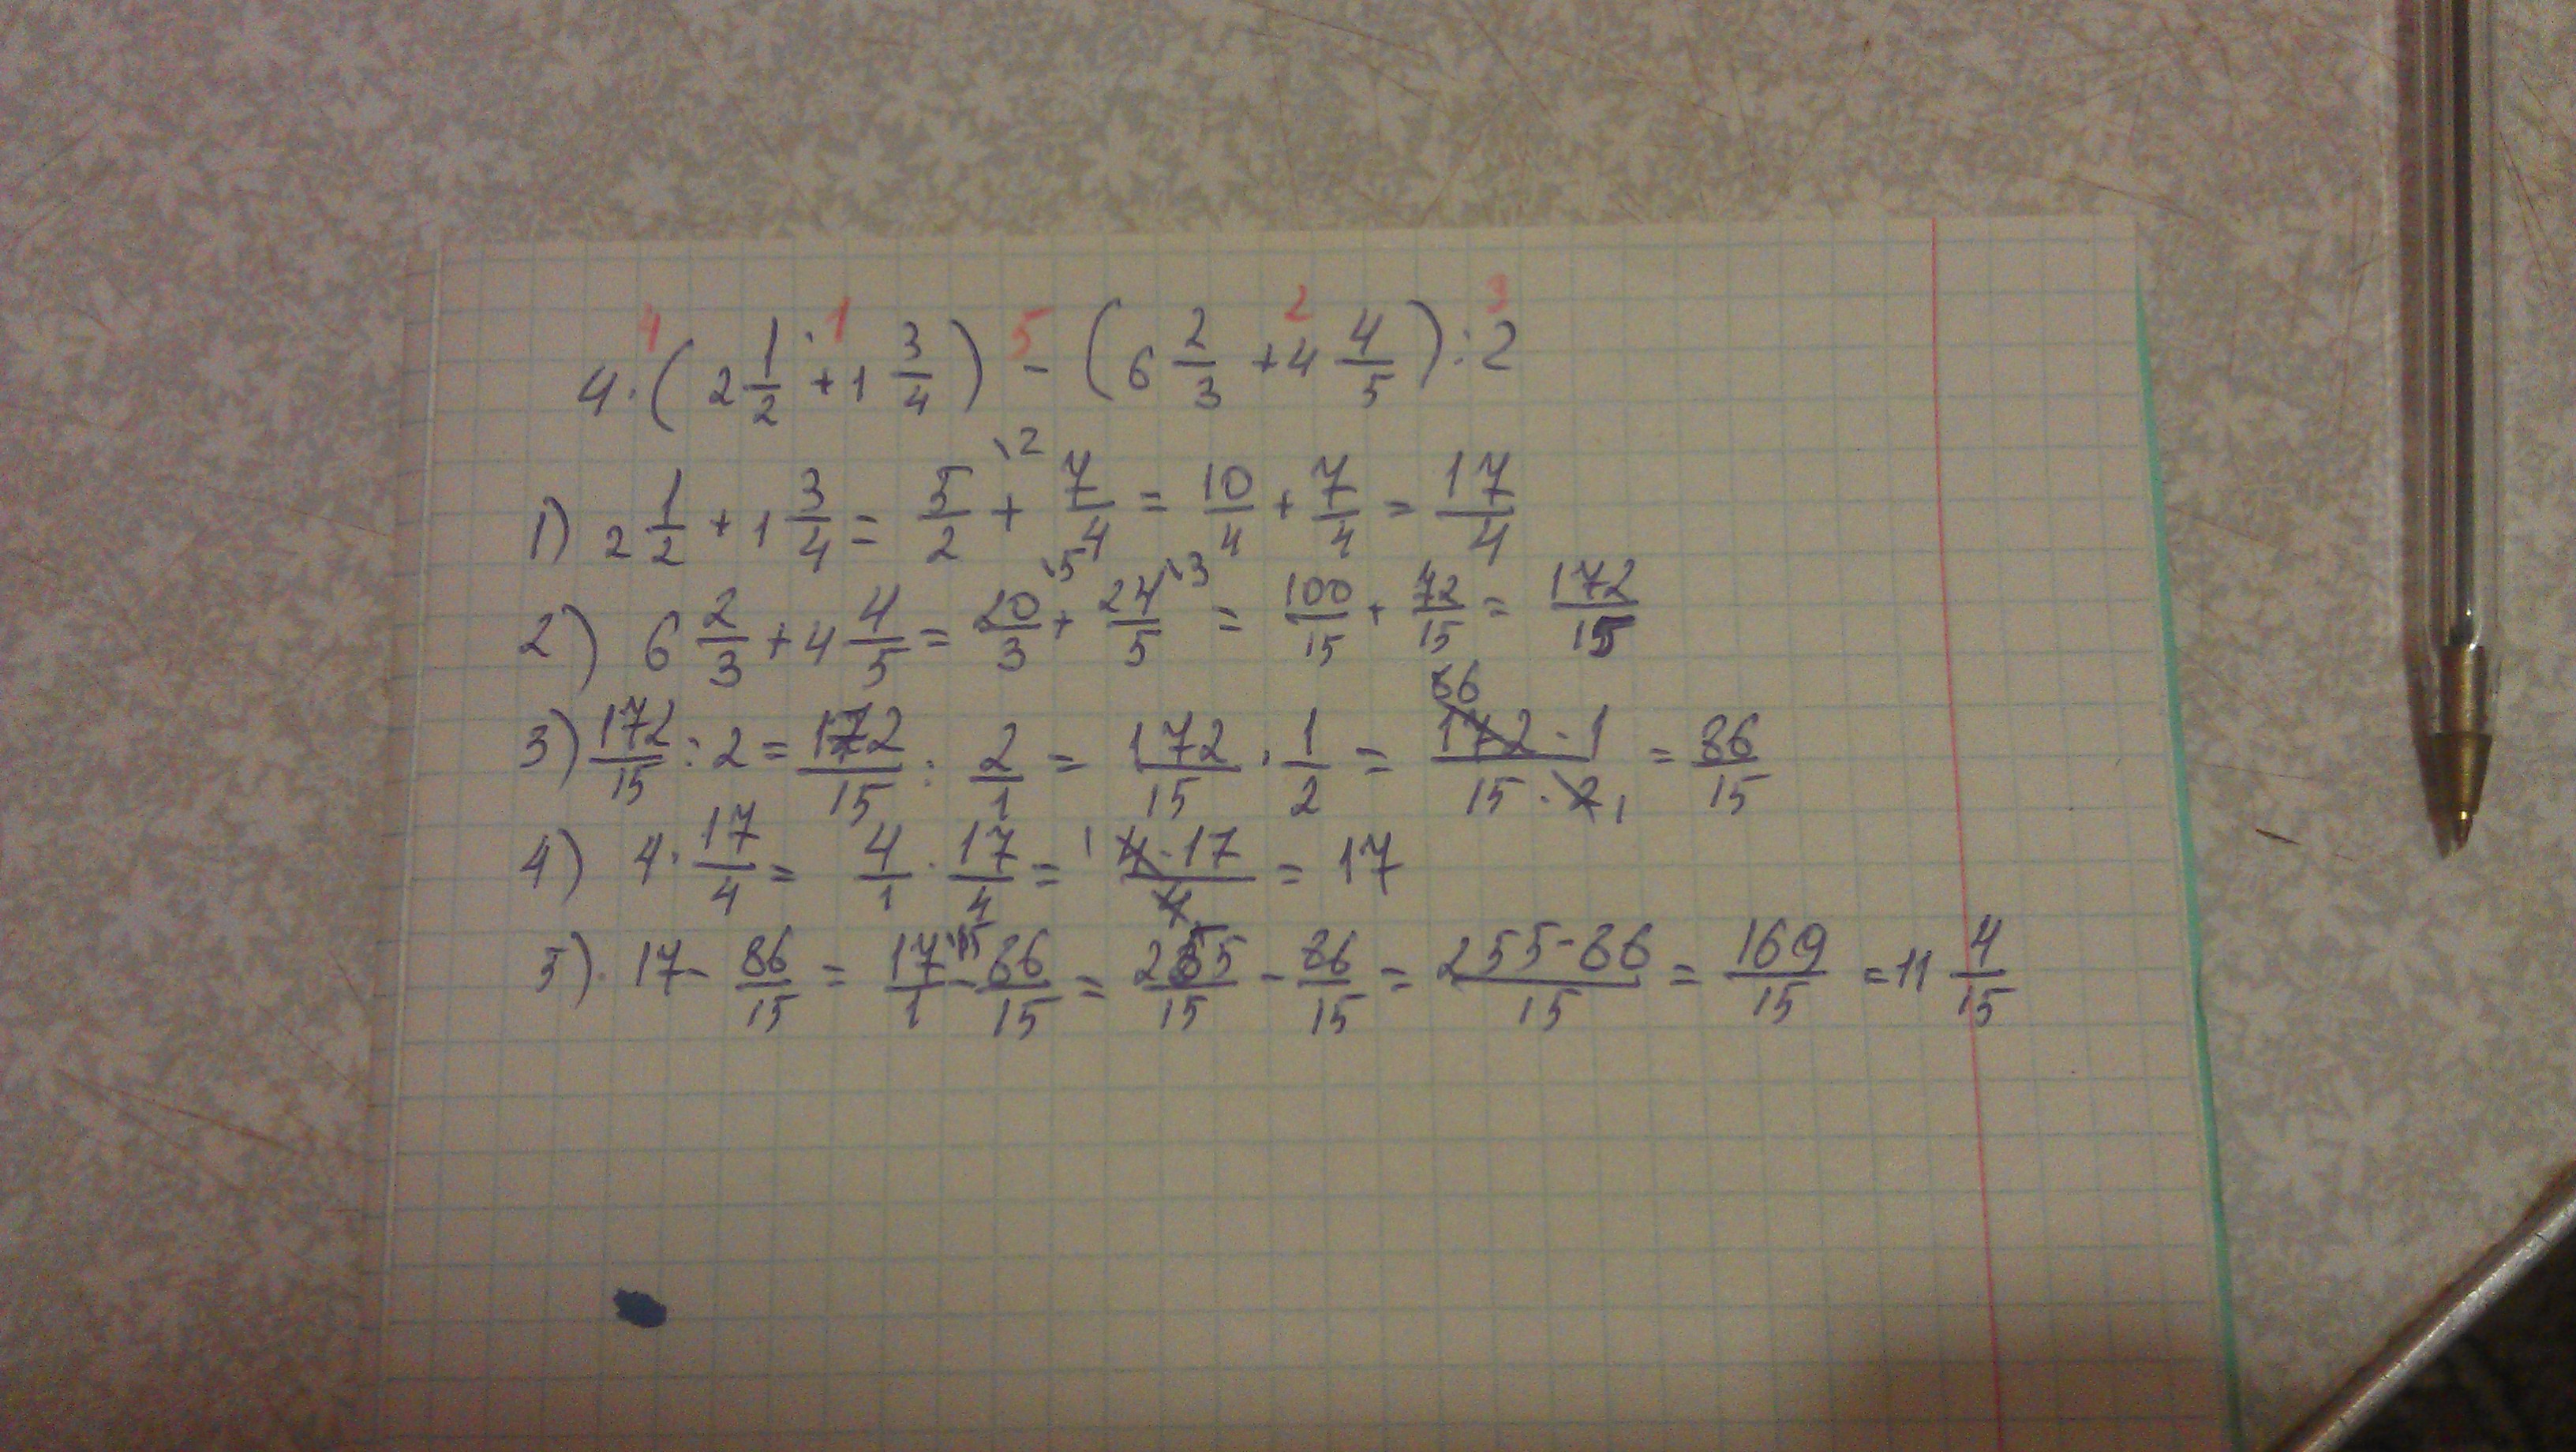 4 1 5 2 3
4·(2 1/2 + 1 3/4) - (6 2/3 + 4 4/5) : 2
1) 2 1/2 + 1 3/4 = 5/2 \2 + 7/4 = 10/4 + 7/4 = 17/4
2) 6 2/3 + 4 4/5 = 20/3 \5 + 24/5 \3 = 100/15 + 72/15 = 172/15
3) 172/15 : 2 = 172/15 : 2/1 = 172/15 · 1/2 = 86 172·1/15·2 1 = 86/15
4) 4·17/4 = 4/1 · 17/4 = 1 4·17/4 = 17
5) 17 - 86/15 = 17/1 \15 - 86/15 = 255/15 - 86/15 = 255-86/15 = 169/15 = 11 4/15